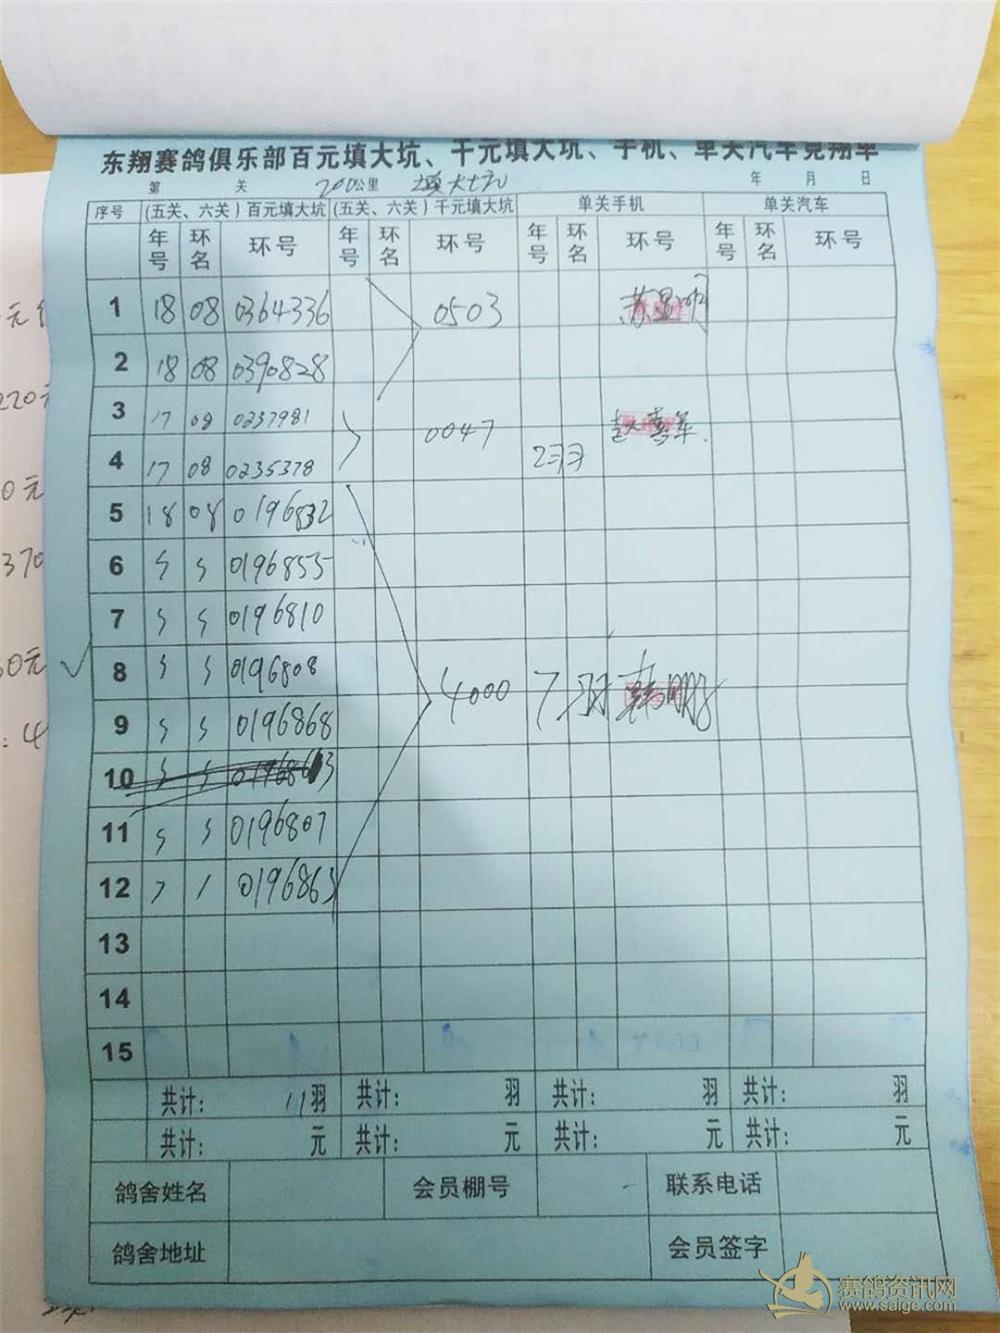 东翔赛鸽俱乐部百元填大坑、千元填大坑、手机、单关汽车竞翔单
第 关 200公里 填大坑 年 月 日
序号 (五关、六关)百元填大坑 (五关、六关)千元填大坑 单关手机 单关汽车
年号 环名 环号 年号 环名 环号 年号 环名 环号 年号 环名 环号
1 18 08 0364336 0503 苏显明
2 18 08 0390828
3 17 08 0237981 0047
4 17 08 0235378 2羽
5 18 08 0196832
6 0196855
7 0196810
8 0196808 4000 7羽
9 0196868
10
11 0196807
12 0196863
13
14
15
共计: 11羽 共计: 羽 共计: 羽 共计: 羽
共计: 元 共计: 元 共计: 元 共计: 元
鸽舍姓名 会员棚号 联系电话
鸽舍地址 会员签字
220元
0元
370
50元
赛鸽资讯网
www.saige.com